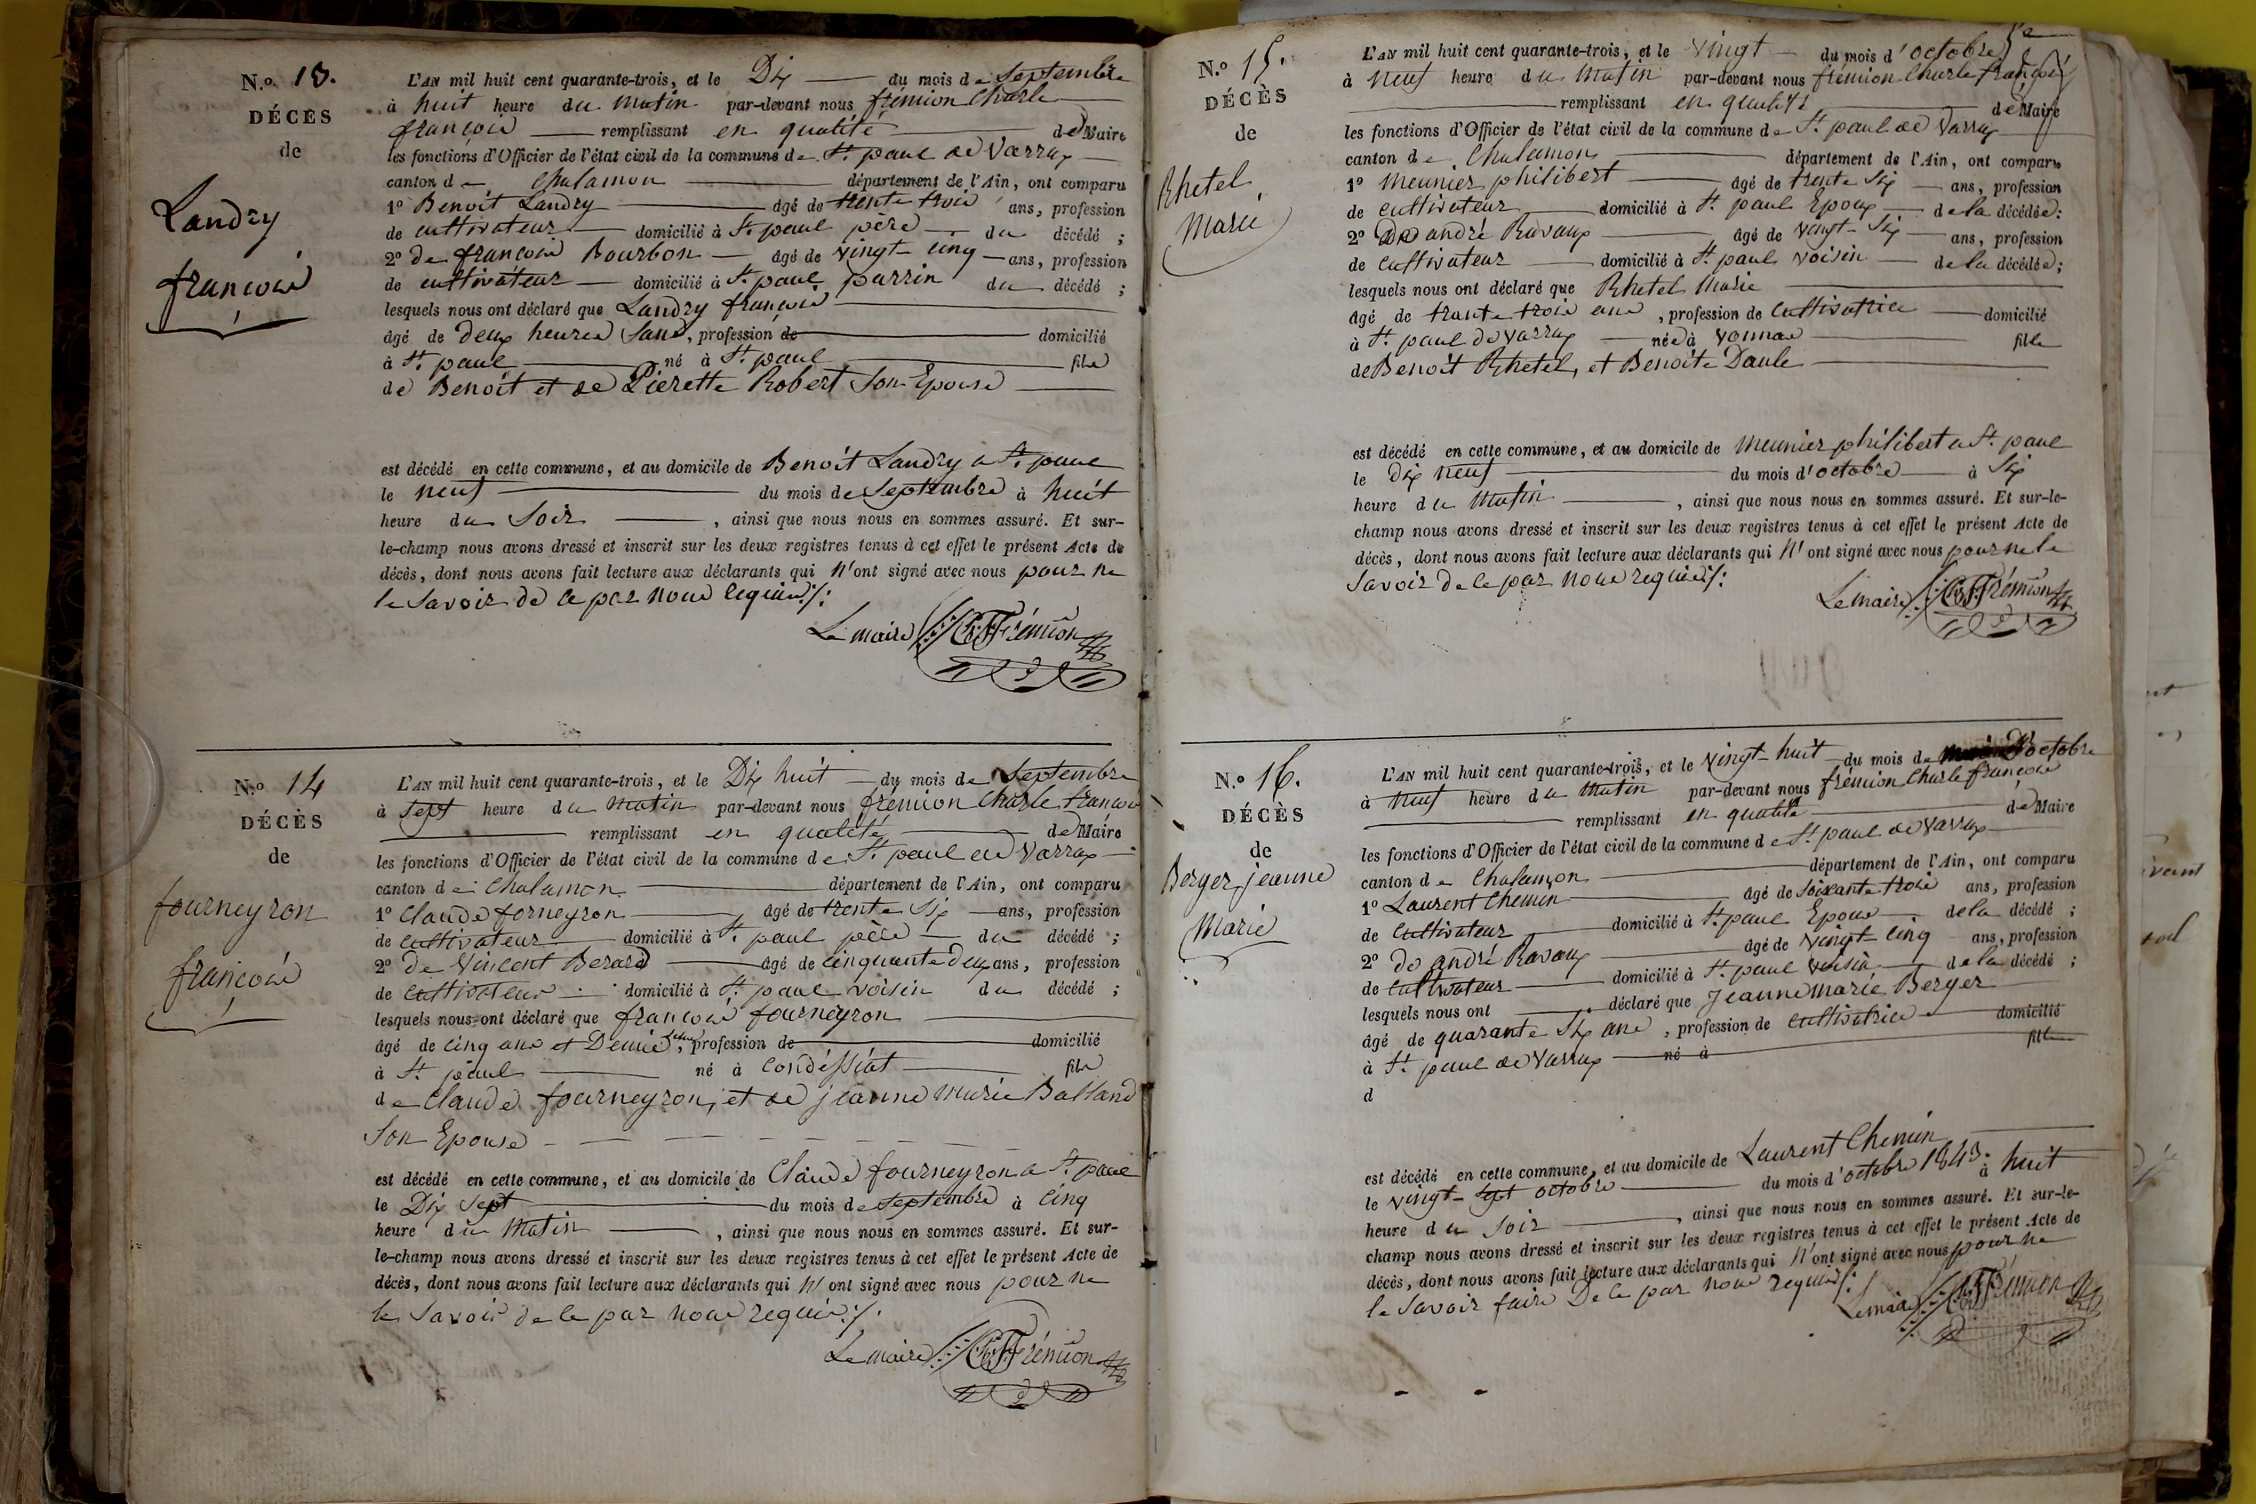 N.º 13.
DÉCÈS
de
Landry
françois
L'AN mil huit cent quarante-trois, et le Dix du mois de Septembre
à huit heure du matin par-devant nous frémion Charle
françois remplissant en qualité de Maire
les fonctions d'Officier de l'état civil de la commune de St. paul de Varrax
canton de Chalamon département de l'Ain, ont comparu
1º Benoit Landry âgé de trente trois ans, profession
de cultivateur domicilié à St. paul père du décédé ;
2º de françois Bourbon âgé de vingt cinq ans, profession
de cultivateur domicilié à St. paul parrin du décédé ;
lesquels nous ont déclaré que Landry françois
âgé de deux heures sans, profession de domicilié
à St. paul né à St. paul fils
de Benoit et de Pierette Robert Son Epouse
est décédé en cette commune, et au domicile de Benoit Landry a St. paul
le neuf du mois de Septembre à huit
heure du Soir , ainsi que nous nous en sommes assuré. Et sur-
le-champ nous avons dressé et inscrit sur les deux registres tenus à cet effet le présent Acte de
décès, dont nous avons fait lecture aux déclarants qui n'ont signé avec nous pour ne
le Savoir de ce par nous requis ./.
Le maire C F Frémion
N.º 14
DÉCÈS
de
fourneyron
françois
L'AN mil huit cent quarante-trois, et le Dix huit du mois de Septembre
à sept heure du matin par-devant nous frémion Charle francois
remplissant en qualité de Maire
les fonctions d'Officier de l'état civil de la commune de St. paul de Varrax
canton de Chalamon département de l'Ain, ont comparu
1º Claude forneyron âgé de trente Six ans, profession
de cultivateur domicilié à St. paul père du décédé ;
2º de Vincent Berard âgé de cinquante deux ans, profession
de cultivateur domicilié à St. paul voisin du décédé ;
lesquels nous ont déclaré que françois fourneyron
âgé de cinq ans et Demie, profession de domicilié
à St. paul né à Condéssiat fils
de Claude fourneyron, et de jeanne Marie Balland
Son Epouse
est décédé en cette commune, et au domicile de Claude fourneyron a St. paul
le Dix Sept du mois de Septembre à cinq
heure du Matin , ainsi que nous nous en sommes assuré. Et sur-
le-champ nous avons dressé et inscrit sur les deux registres tenus à cet effet le présent Acte de
décès, dont nous avons fait lecture aux déclarants qui n'ont signé avec nous pour ne
le Savoir de ce par nous requis ./.
Le maire C F Frémion
N.º 15.
DÉCÈS
de
Rhetel
Marie
L'AN mil huit cent quarante-trois, et le vingt du mois d'octobre
à neuf heure du matin par-devant nous frémion Charle françois
remplissant en qualité de Maire
les fonctions d'Officier de l'état civil de la commune de St. paul de Varrax
canton de Chalamon département de l'Ain, ont comparu
1º meunier philibert âgé de trente Six ans, profession
de cultivateur domicilié à St. paul Epoux de la décédée ;
2º de andré Ravaux âgé de vingt-Six ans, profession
de cultivateur domicilié à St. paul voisin de la décédée ;
lesquels nous ont déclaré que Rhetel Marie
âgé de trante trois ans , profession de cultivatrice domicilié
à St. paul de varrax née à vonnas fille
de Benoit Rhetel, et Benoite Daule
est décédé en cette commune, et au domicile de meunier philibert a St. paul
le dix neuf du mois d'octobre à Six
heure du Matin , ainsi que nous nous en sommes assuré. Et sur-le-
champ nous avons dressé et inscrit sur les deux registres tenus à cet effet le présent Acte de
décès, dont nous avons fait lecture aux déclarants qui n'ont signé avec nous pour ne le
Savoir de ce par nous requis ./.
Le maire C F Frémion
N.º 16.
DÉCÈS
de
Berger jeanne
Marie
L'AN mil huit cent quarante-trois, et le vingt-huit du mois de D'octobre
à neuf heure du Matin par-devant nous frémion Charle françois
remplissant en qualité de Maire
les fonctions d'Officier de l'état civil de la commune de St. paul de Varrax
canton de Chalamon département de l'Ain, ont comparu
1º Laurent Chemin âgé de soixante trois ans, profession
de cultivateur domicilié à St. paul Epoux de la décédé ;
2º de andré Ravaux âgé de vingt-cinq ans, profession
de cultivateur domicilié à St. paul voisin de la décédé ;
lesquels nous ont déclaré que jeanne marie Berger
âgé de quarante Six ans , profession de cultivatrice domicilié
à St. paul de Varrax né à fille
d
est décédé en cette commune, et au domicile de Laurent Chemin
le vingt-sept octobre du mois d'octobre 1843. à huit
heure du Soir , ainsi que nous nous en sommes assuré. Et sur-le-
champ nous avons dressé et inscrit sur les deux registres tenus à cet effet le présent Acte de
décès, dont nous avons fait lecture aux déclarants qui n'ont signé avec nous pour ne
le Savoir faire De ce par nous requis ./.
Le maire C F Frémion